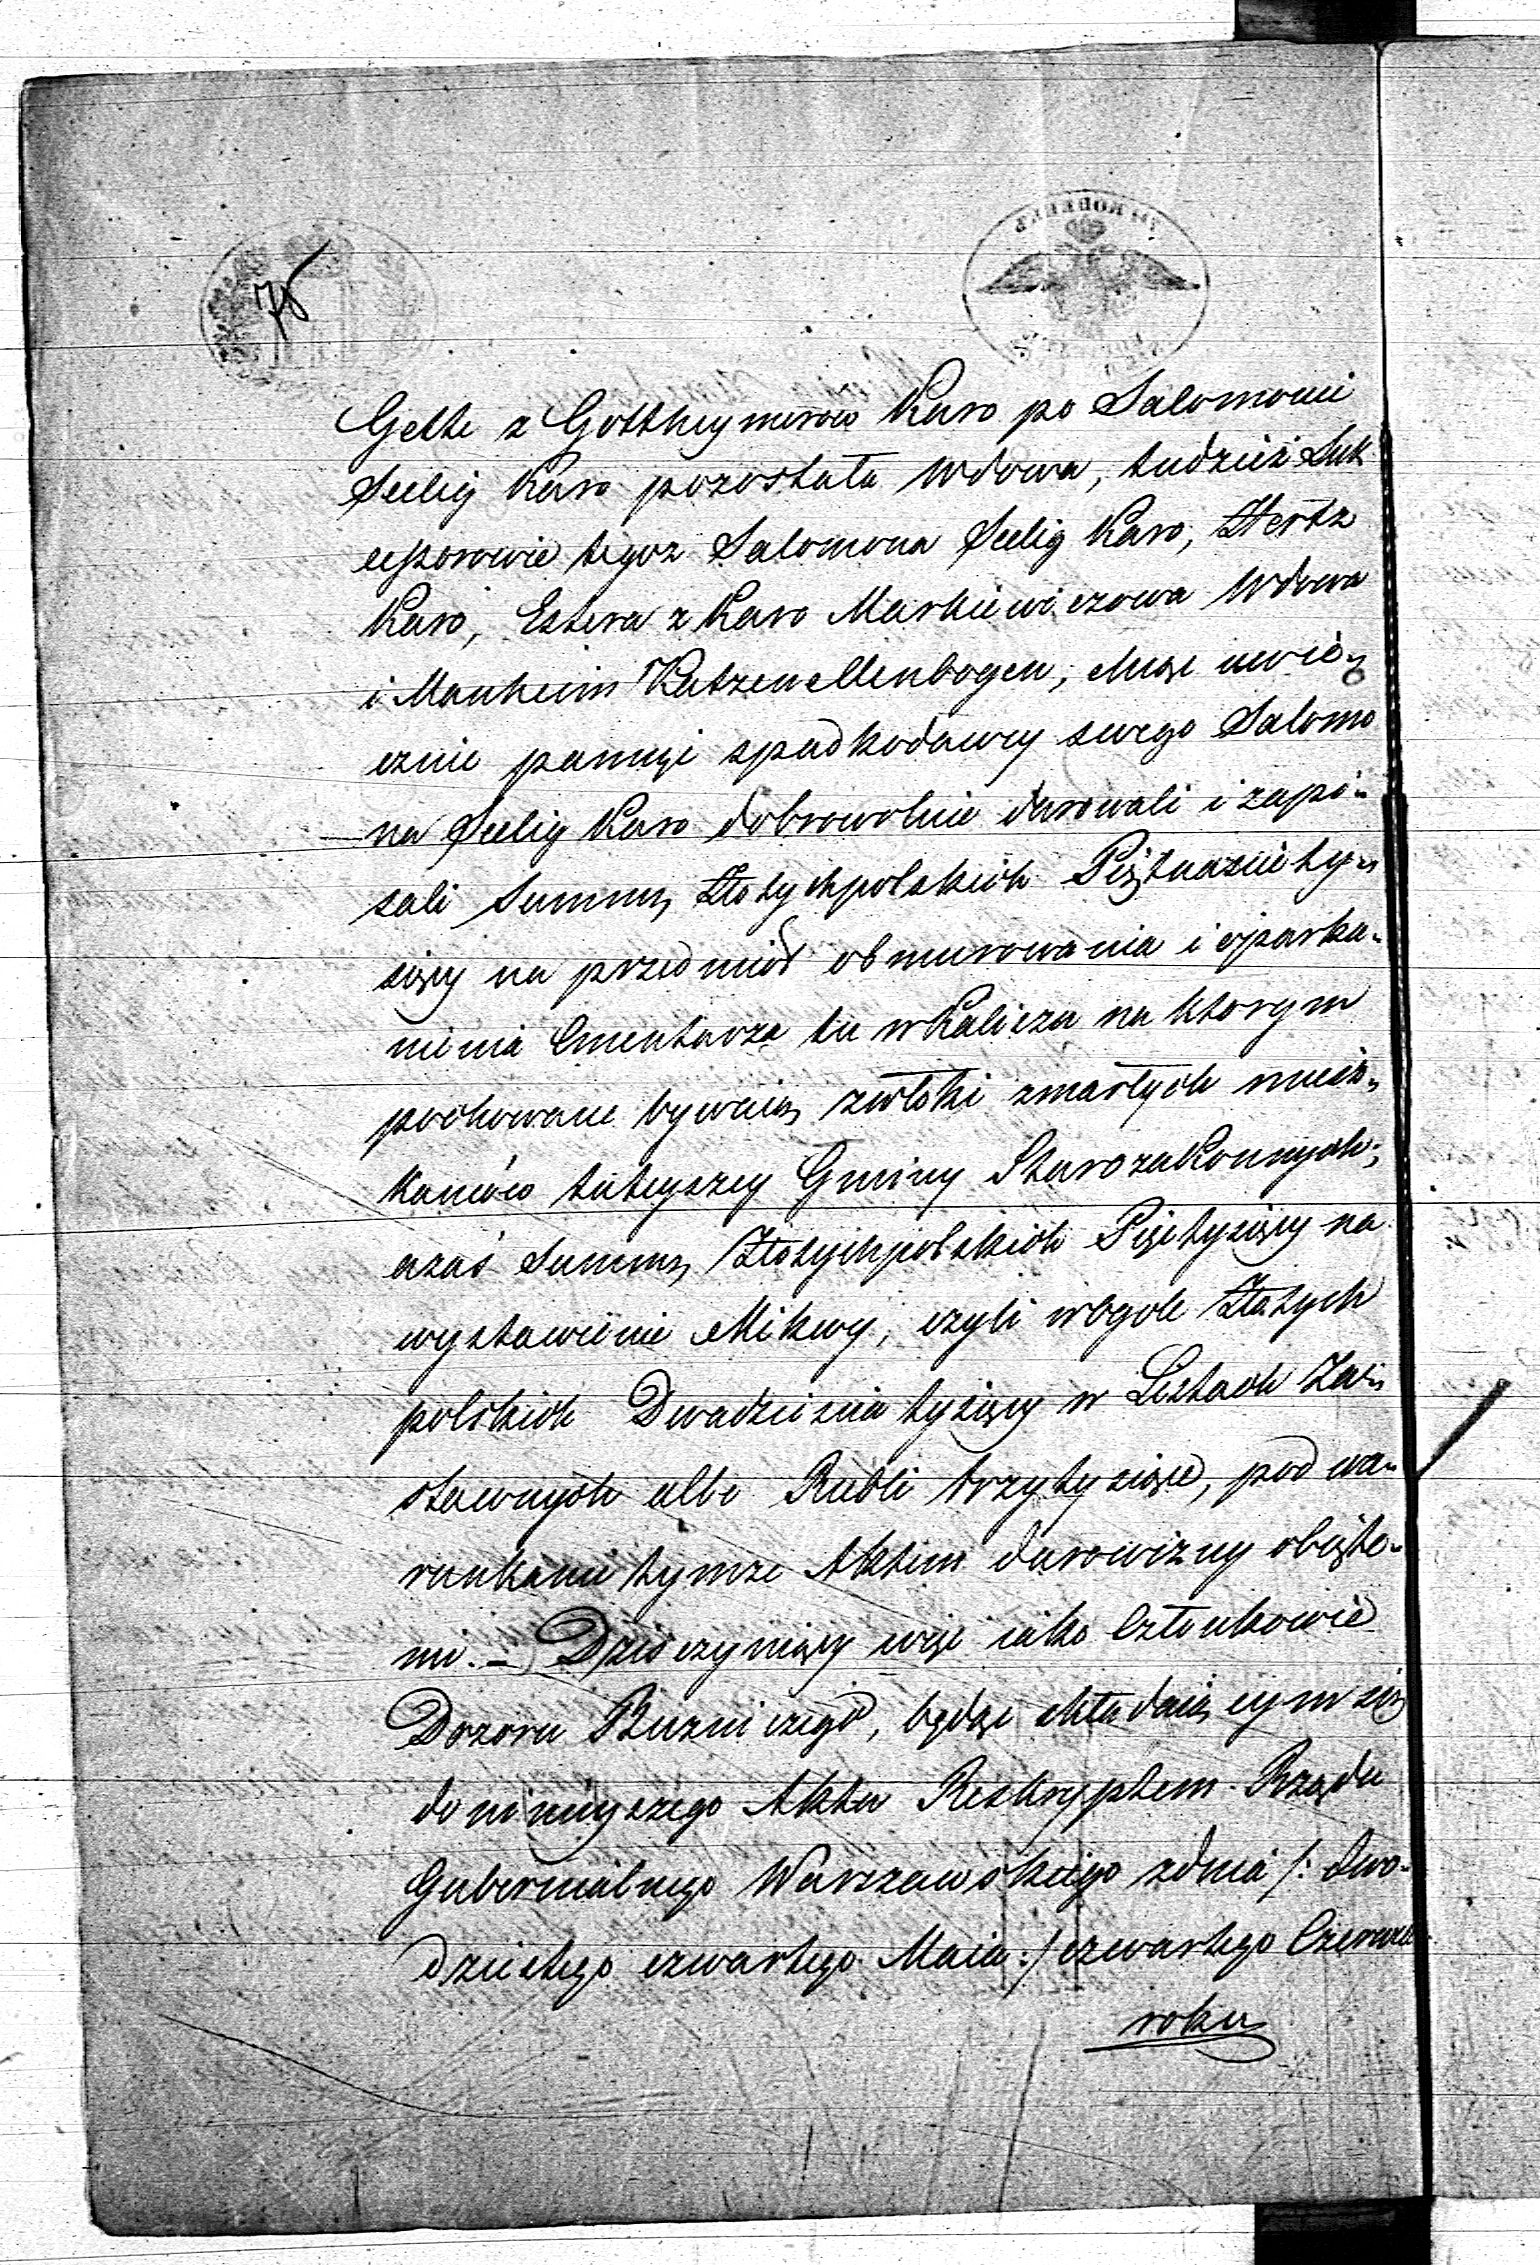 75
Gette z Gottheymerów Karo po Salomonie
Seelig Karo pozostała Wdowa, tudzież Suk
cessorowie tegoż Salomona Seelig Karo, Hertz
Karo, Estera z Karo Markiewiczowa Wdowa
i Manheim Katzenellenbogen, chcąc uwie„
cznić pamięć spadkodawcy swego Salomo
na Seelig Karo dobrowolnie darowali i zapi„
sali Summę Złotychpolskich Piętnaście ty„
sięcy na przedmiot obmurowania i oparka„
nienia Cmentarza tu w Kaliszu na ktorym
pochowane bywaią zwłoki zmarłych miesz„
kańców tuteyszey Gminy Starozakonnych;
zaś Summę Złotychpolskich Pięć tysięcy na
wystawienie Mikwy, czyli wogóle Złotych
polskich Dwadzieścia tysięcy w Listach Zas„
stawnych albo Rubli trzy tysiące, pod wa„
runkami tymże Aktem darowizny obięte„
mi. — Działo czyniący więc iako Członkowie
Dozoru Bużniczego, będąc składaiącym się
do ninieyszego Aktu Reskryptem Rządu
Gubernialnego Warszawskiego z dnia /: dwu„
dziestego czwartego Maia :/ czwartego Czerwca
roku